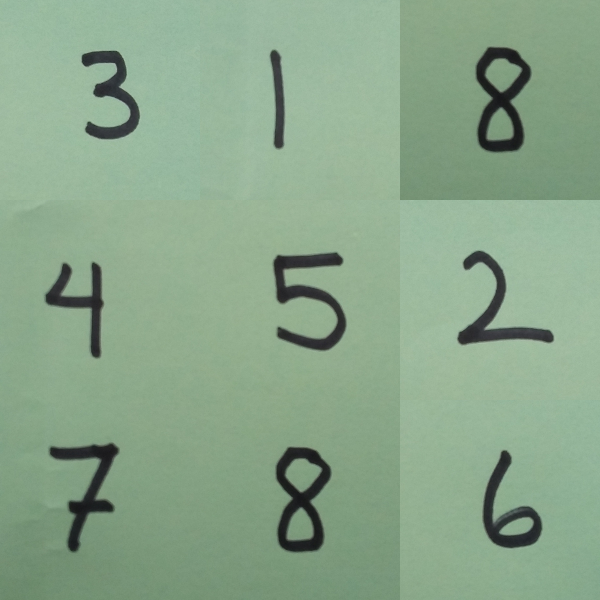 3 1 8
4 5 2
7 8 6